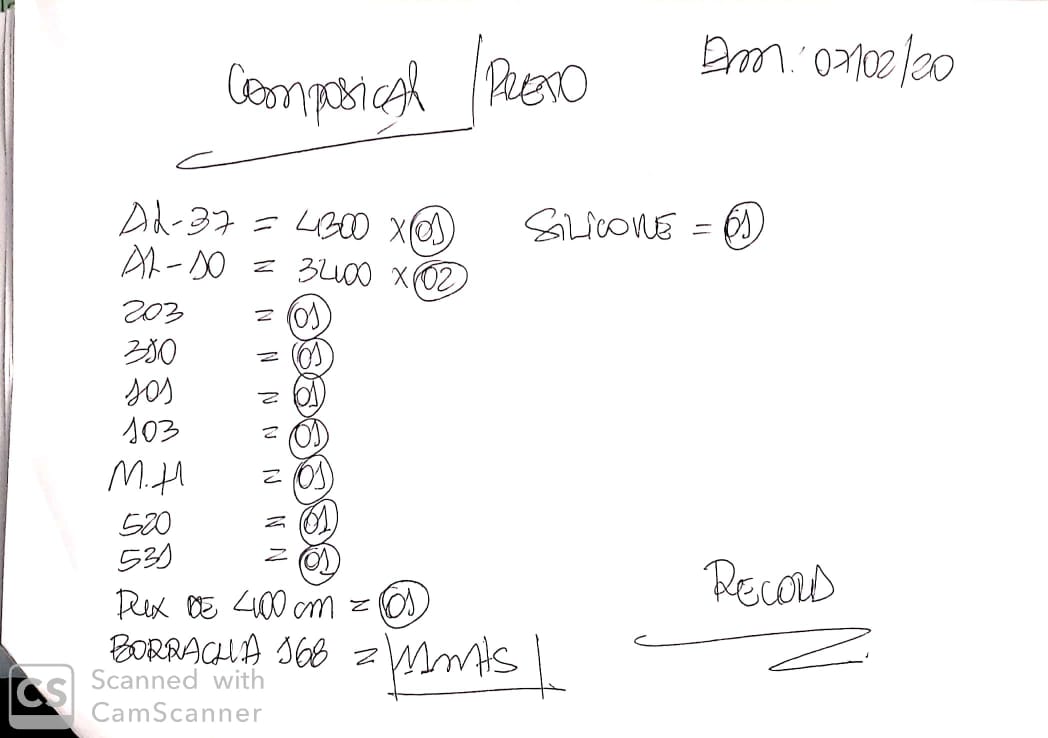 Composical / PRETO
Em: 07/02/20
AL-37 = 4300 x 01
SILICONE = 01
AL-10 = 3400 x 02
203 = 01
310 = 01
101 = 01
103 = 01
M.H = 01
520 = 01
531 = 01
DE 400 cm = 01
BORRACHA 168 = 11 mts
RECORD
CS Scanned with
CamScanner